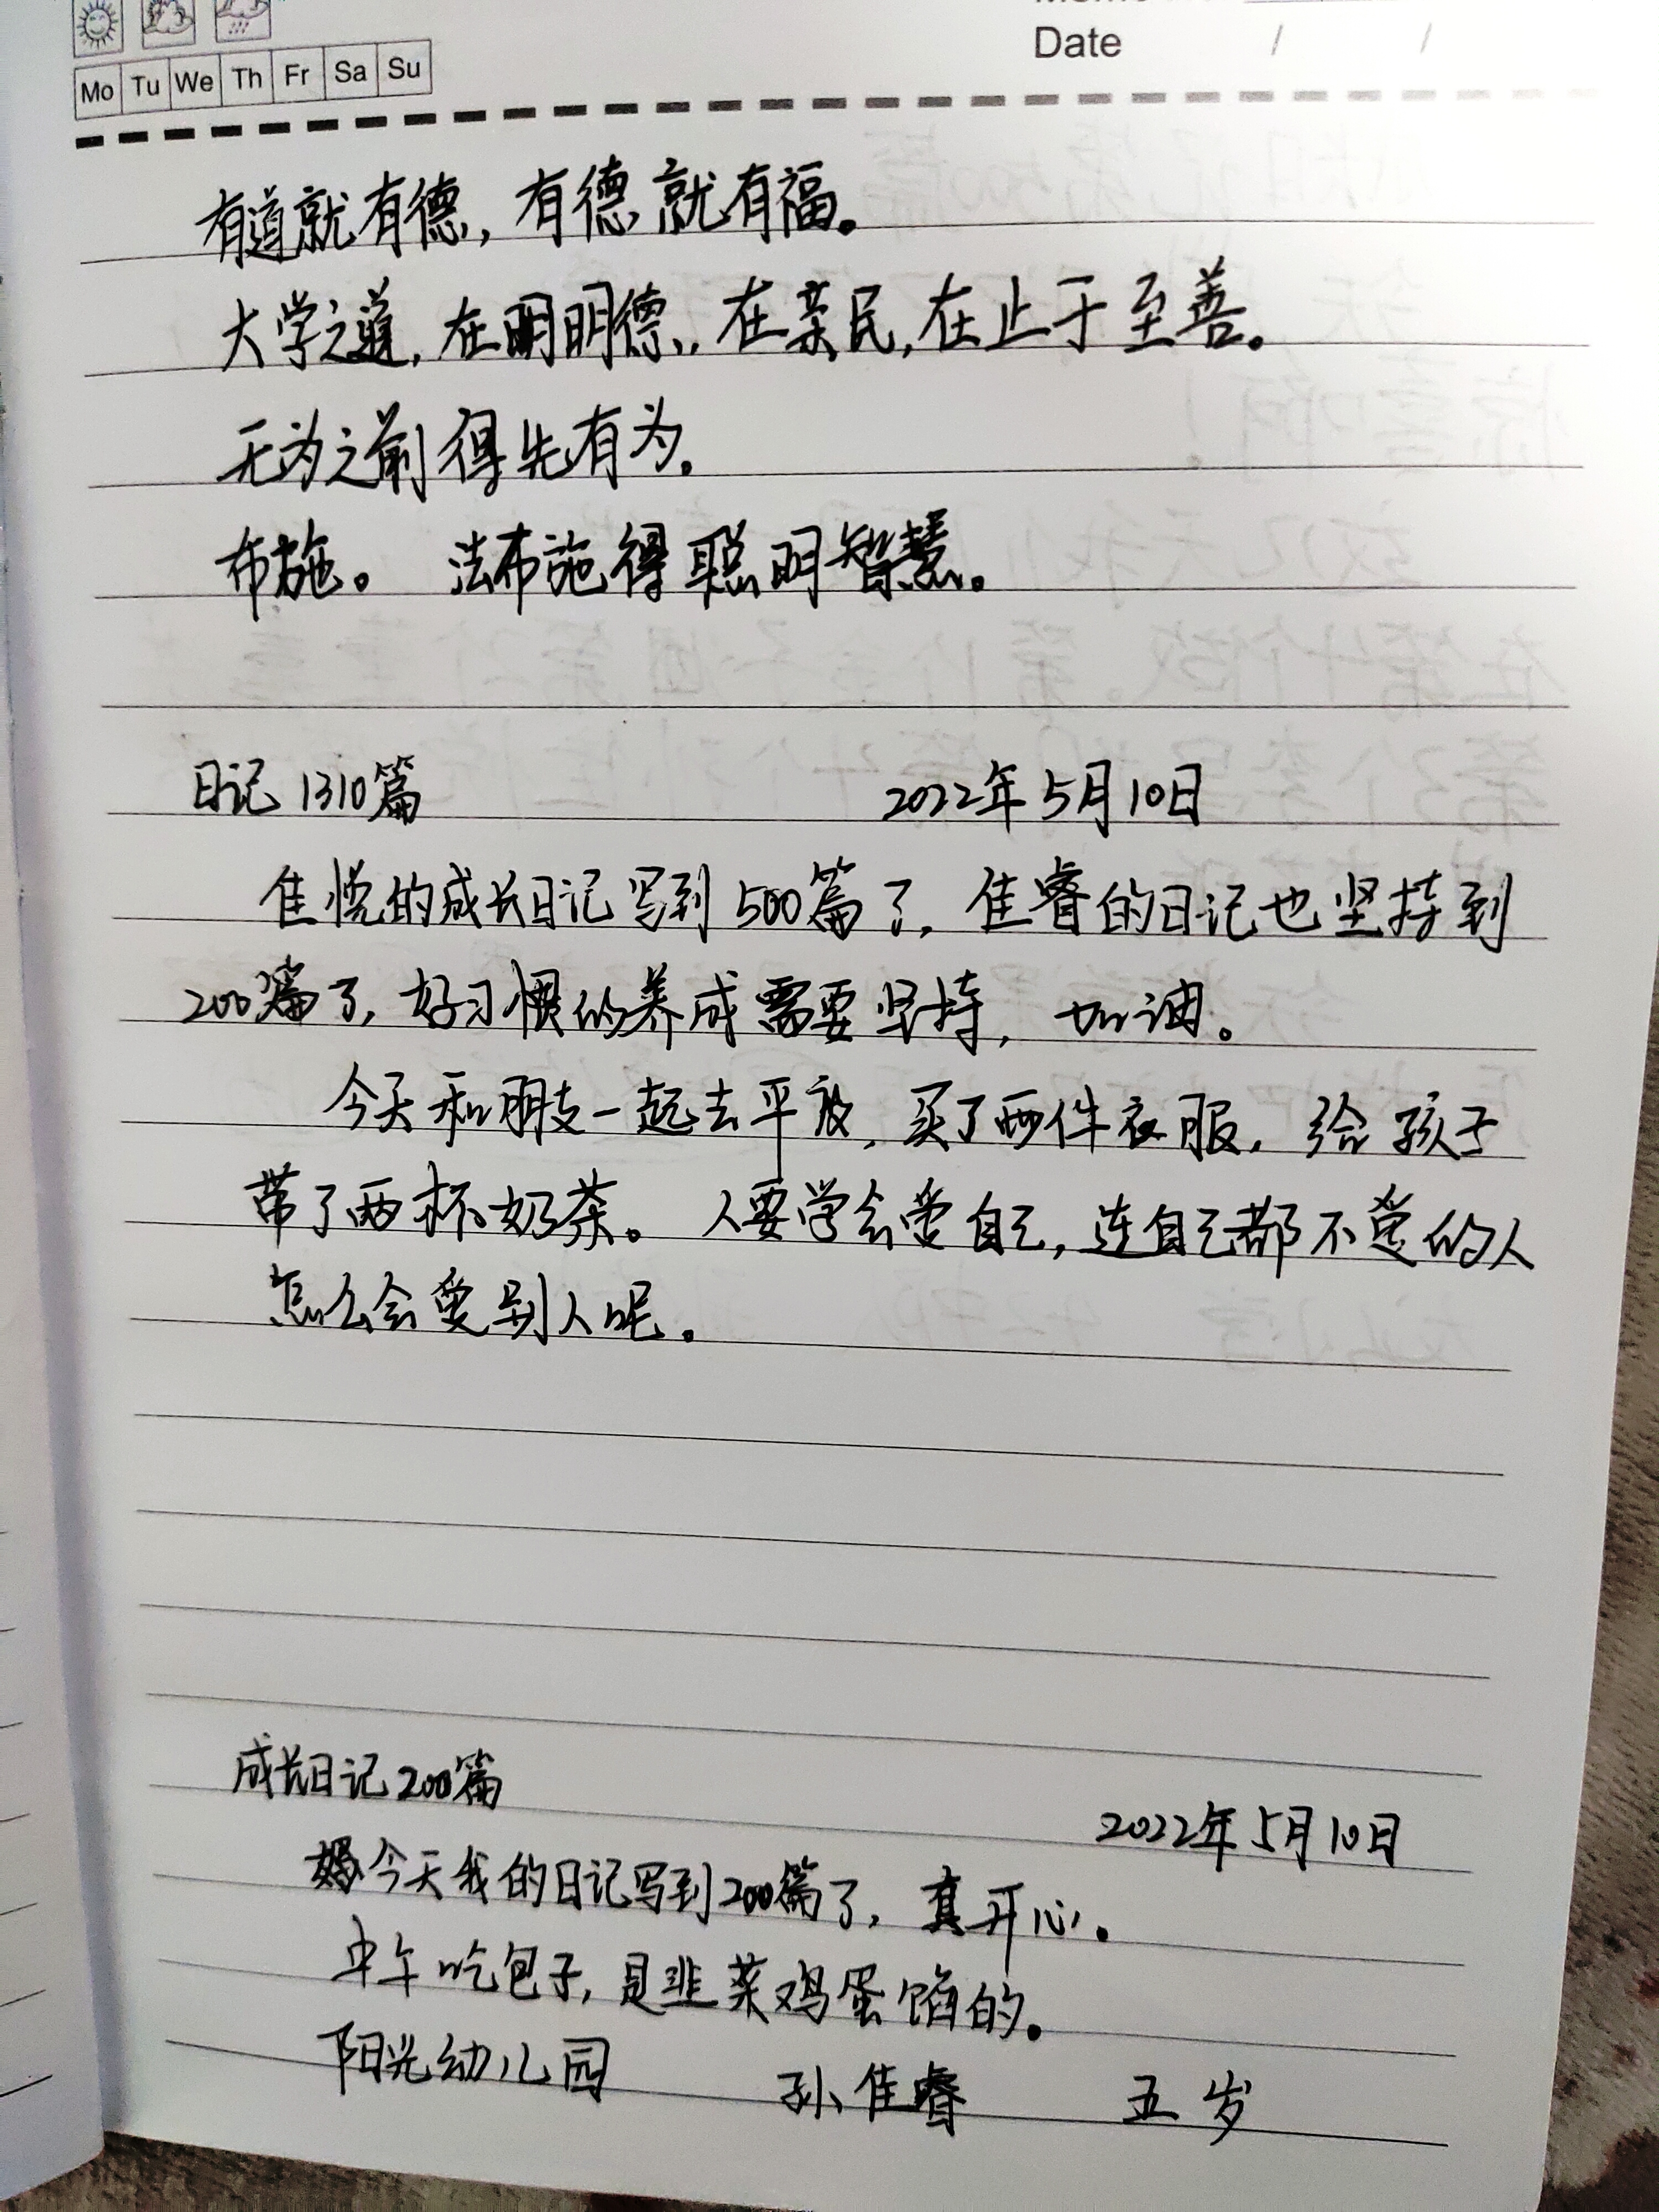 Mo Tu We Th Fr Sa Su
Date / /
有道就有德，有德就有福。
大学之道，在明明德，在亲民，在止于至善。
无为之前得先有为。
布施。 法布施得聪明智慧。
日记1310篇 2022年5月10日
佳悦的成长日记写到500篇了，佳睿的日记也坚持到
200篇了，好习惯的养成需要坚持，加油。
今天和朋友一起去平放，买了两件衣服，给孩子
带了两杯奶茶。人要学会爱自己，连自己都不爱的人
怎么会爱别人呢。
成长日记200篇
2022年5月10日
今天我的日记写到200篇了，真开心。
中午吃包子，是韭菜鸡蛋馅的。
阳光幼儿园 孙佳睿 五岁